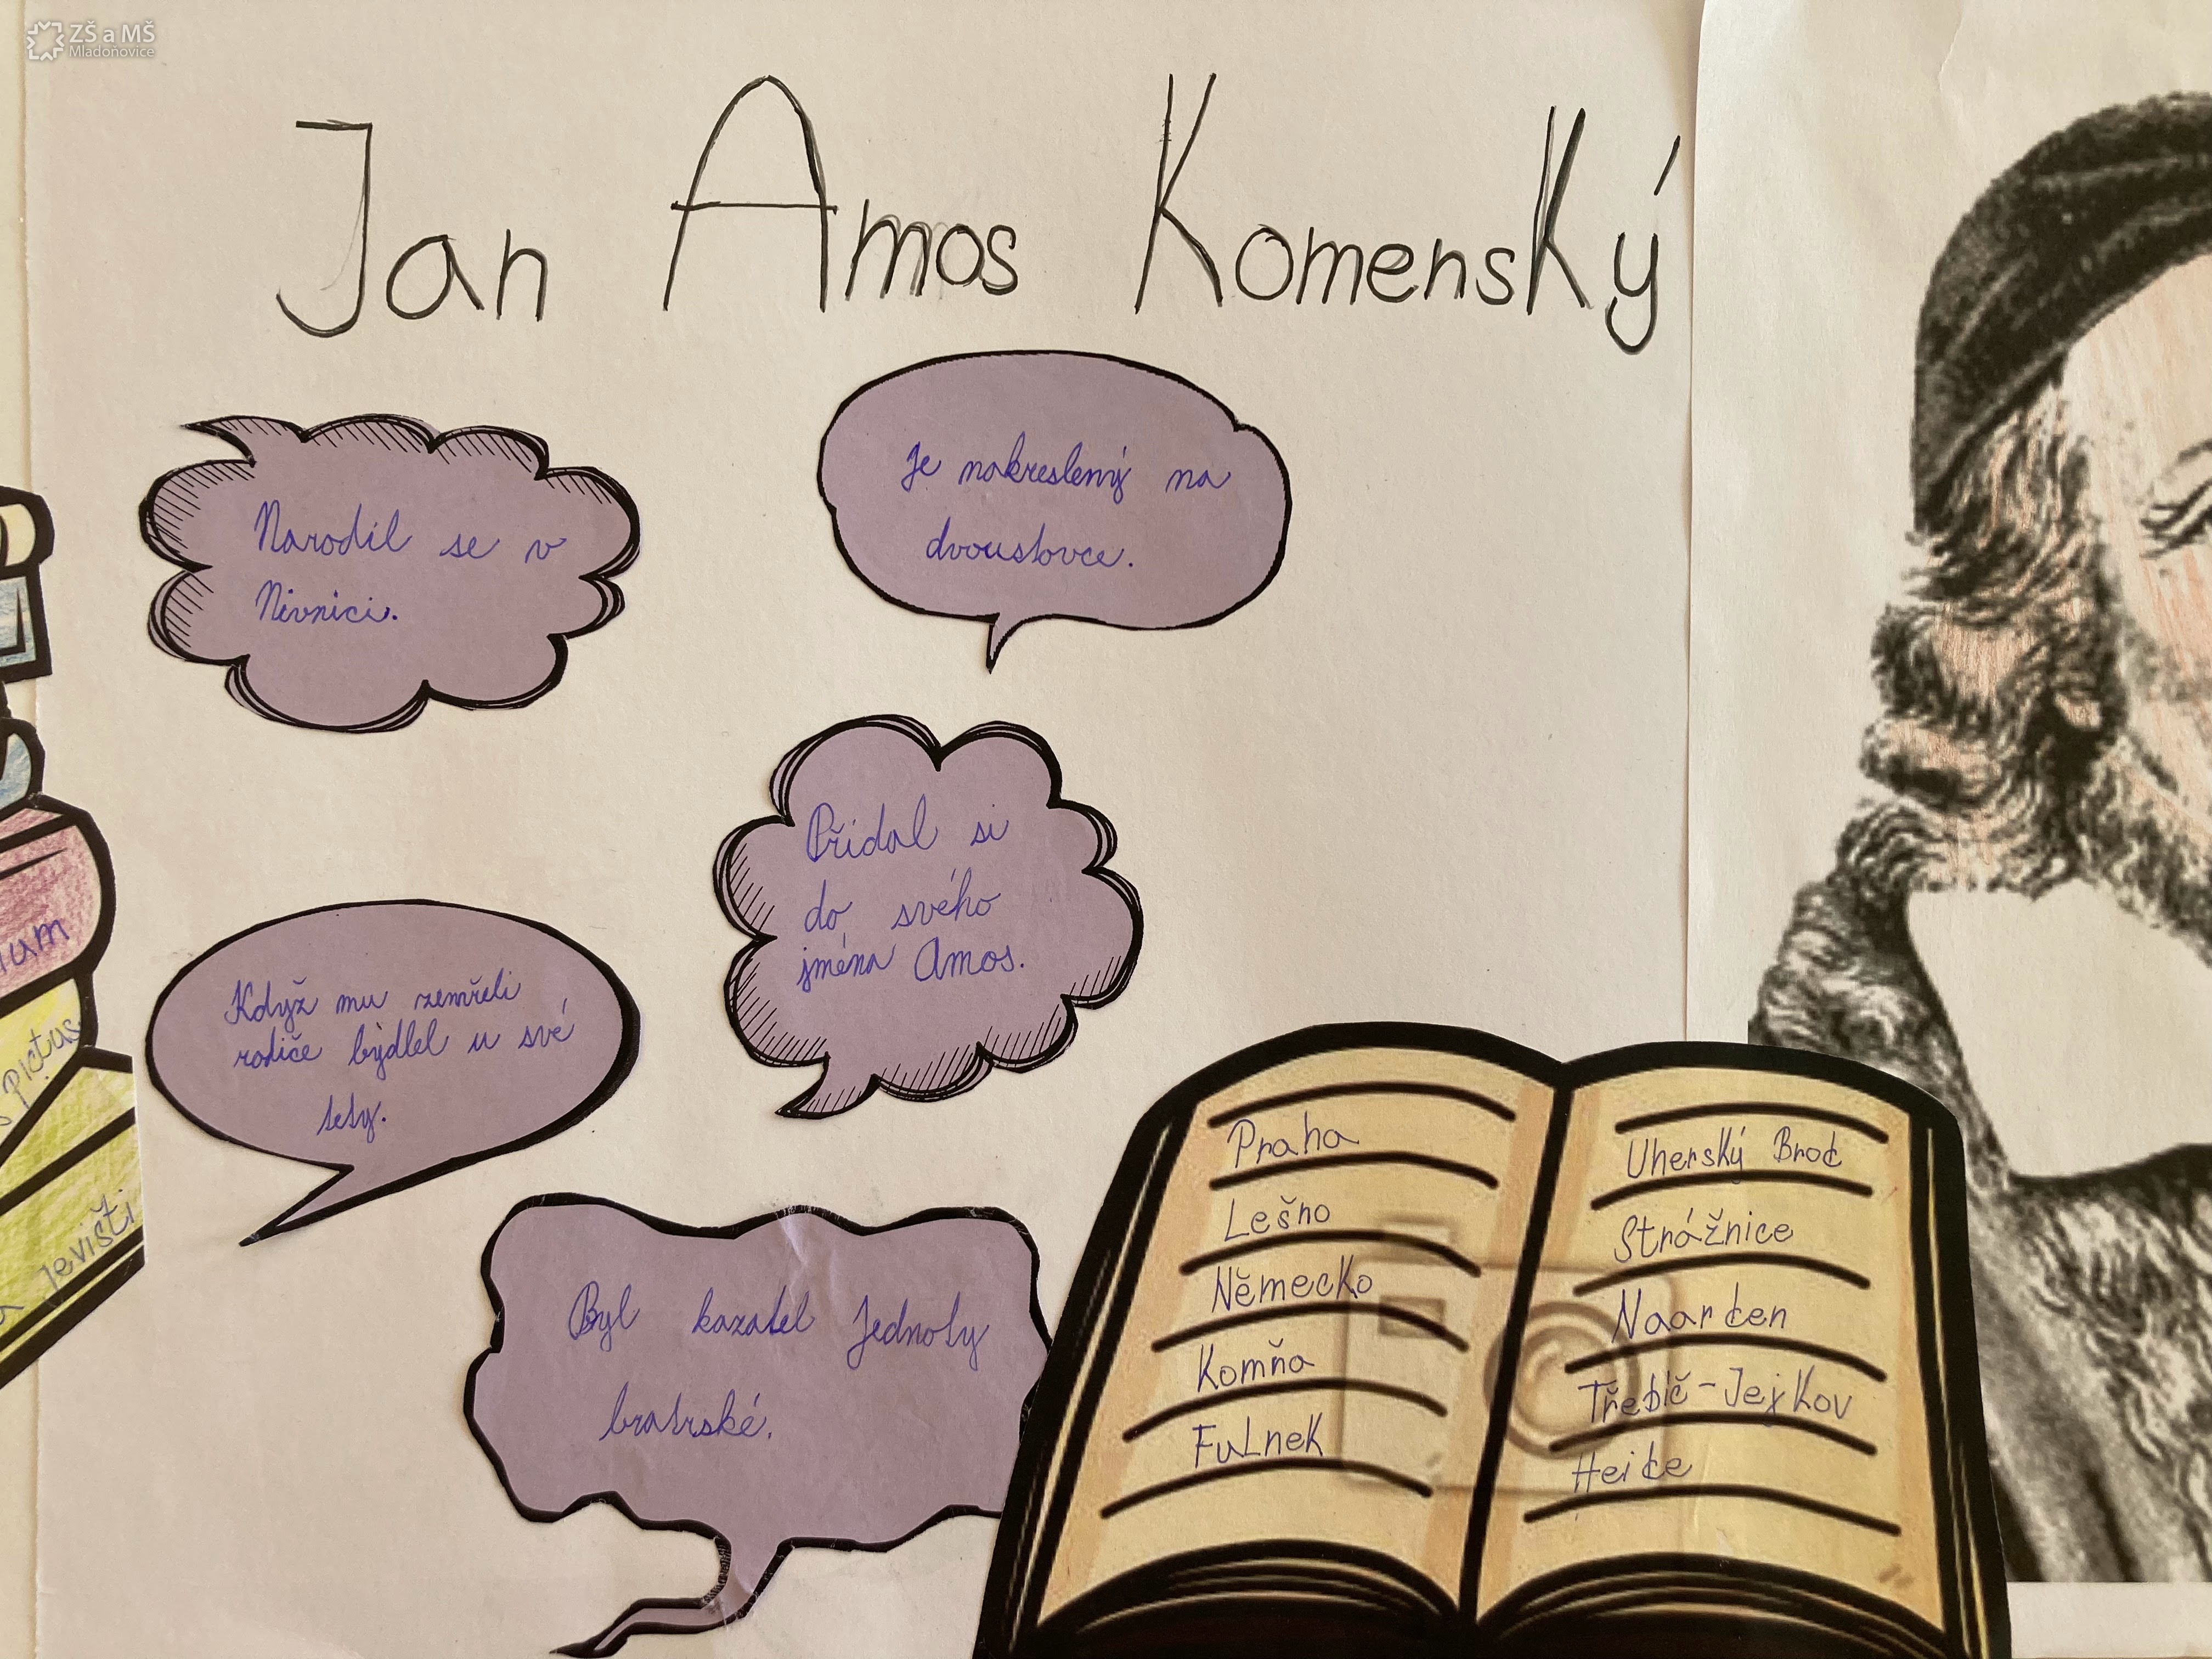 ZŠ a MŠ
Mladoňovice
Jan Amos Komenský
Narodil se v
Nivnici.
Je nakreslený na
dvoustovce.
Přidal si
do svého
jména Amos.
Když mu zemřeli
rodiče bydlel u své
tety.
Byl kazatel Jednoty
bratrské.
Praha
Lešno
Německo
Komňa
Fulnek
Uherský Brod
Strážnice
Naarden
Třebíč-Jejkov
Heide
ium
s pictus
a jevišti